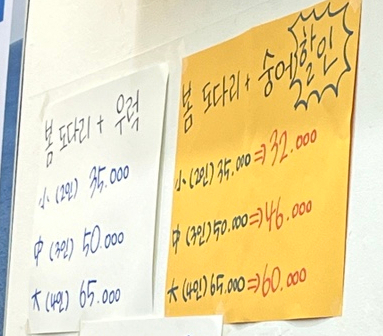 봄 도다리 + 우럭
小 (2인) 35.000
中 (3인) 50.000
大 (4인) 65.000
봄 도다리 + 숭어 할인
小 (2인) 35.000 ⇒ 32.000
中 (3인) 50.000 ⇒ 46.000
大 (4인) 65.000 ⇒ 60.000